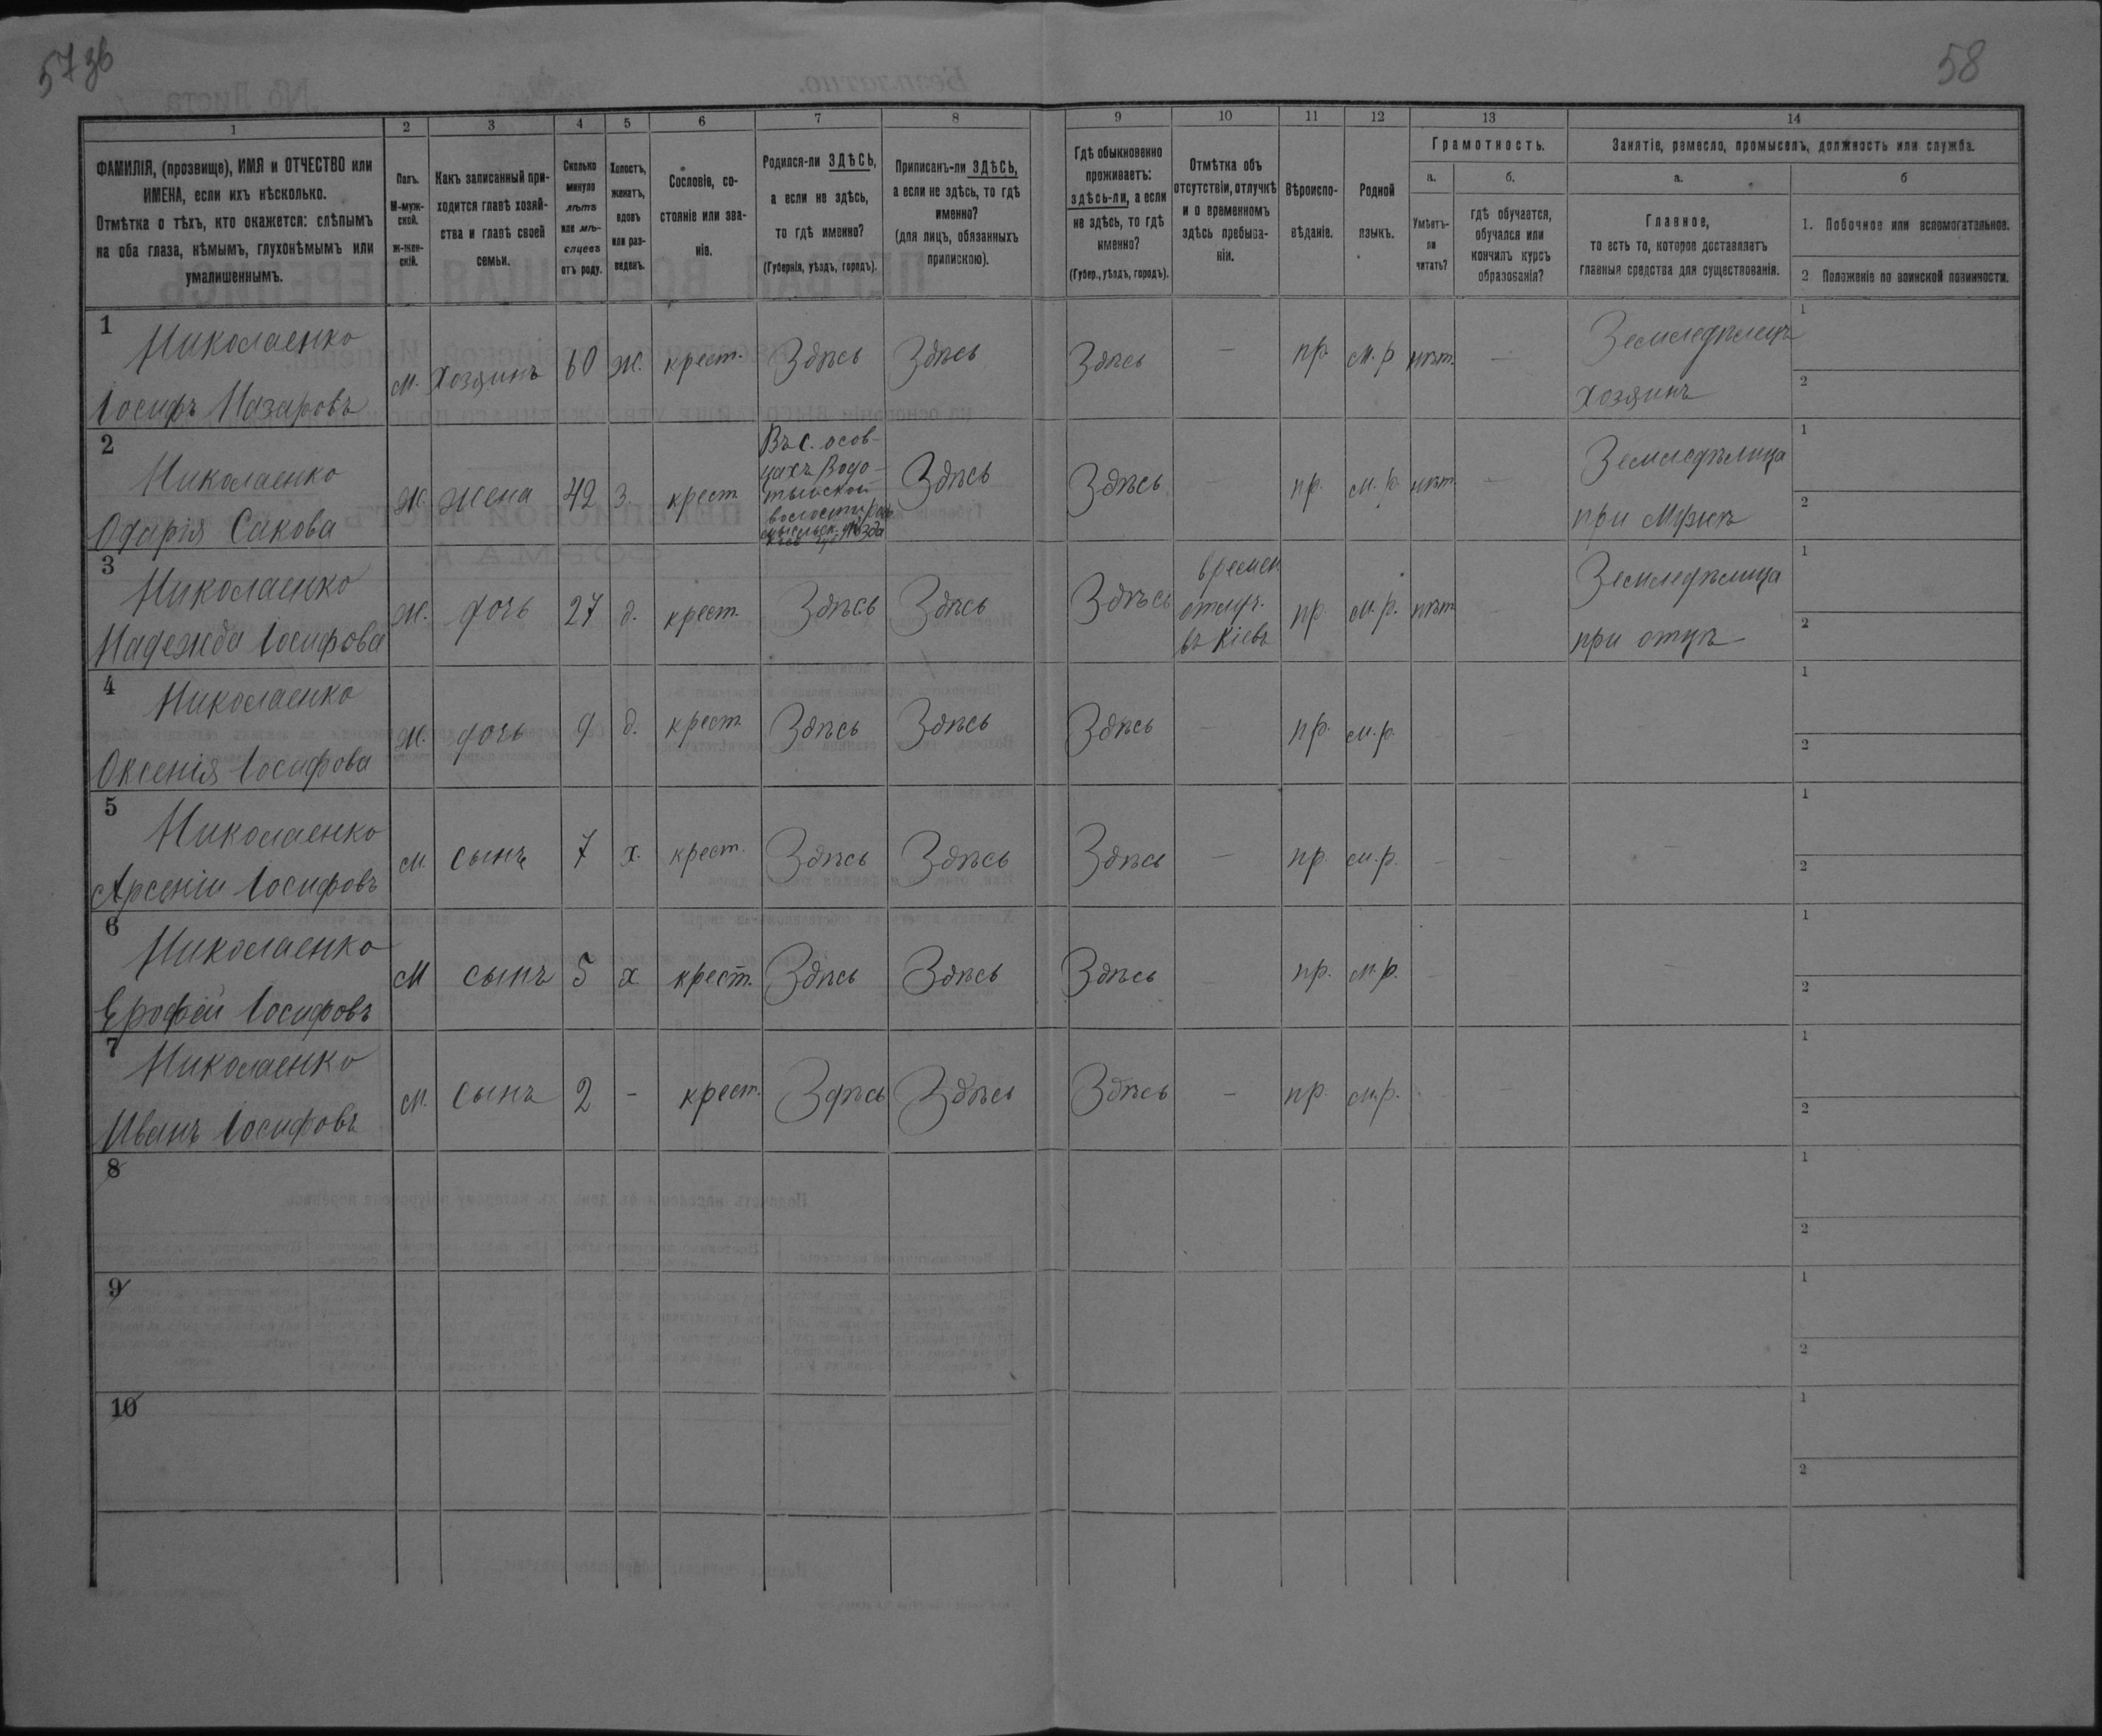 57 зв
58
1
2
3
4
5
6
7
8
9
10
11
12
13
14
ФАМИЛІЯ, (прозвище), ИМЯ и ОТЧЕСТВО или
ИМЕНА, если ихъ нѣсколько.
Отмѣтка о тѣхъ, кто окажется: слѣпымъ
на оба глаза, нѣмымъ, глухонѣмымъ или
умалишеннымъ.
Полъ.
М-муж-
ской.
Ж-жен-
скій.
Какъ записанный при-
ходится главѣ хозяй-
ства и главѣ своей
семьи.
Сколько
минуло
лѣтъ
или мѣ-
сяцевъ
отъ роду.
Холостъ,
женатъ,
вдовъ
или раз-
веденъ.
Сословіе, со-
стояніе или зва-
ніе.
Родился-ли ЗДѢСЬ,
а если не здѣсь,
то гдѣ именно?
(Губернія, уѣздъ, городъ).
Приписанъ-ли ЗДѢСЬ,
а если не здѣсь, то гдѣ
именно?
(для лицъ, обязанныхъ
припискою).
Гдѣ обыкновенно
проживаетъ:
здѣсь-ли, а если
не здѣсь, то гдѣ
именно?
(Губер., уѣздъ, городъ).
Отмѣтка объ
отсутствіи, отлучкѣ
и о временномъ
здѣсь пребыва-
ніи.
Вѣроиспо-
вѣданіе.
Родной
языкъ.
Грамотность.
а.
Умѣетъ-
ли
читать?
б.
гдѣ обучается,
обучался или
кончилъ курсъ
образованія?
Занятіе, ремесло, промыселъ, должность или служба.
а.
Главное,
то есть то, которое доставляетъ
главныя средства для существованія.
б
1. Побочное или вспомогательное.
2 Положеніе по воинской повинности.
1
Николаенко
Іосифъ Назаровъ
м. хозяинъ 60 ж. крест. Здѣсь Здѣсь Здѣсь — пр. м. р нѣт. —
Земледѣлецъ
хозяинъ
1
2
2
Николаенко
Сакова
ж. жена 42 з. крест
Въ с. Осов-
цахъ Водо-
тыйской
волости
уѣзда
Здѣсь Здѣсь — пр. м. р. нѣт —
Земледѣлица
при мужѣ
1
2
3
Николаенко
Надежда Іосифова
ж. дочь 27 д. крест. Здѣсь Здѣсь Здѣсь
времен
отлуч.
въ Кіевъ
пр. м. р. нѣт
Земледѣлица
при отцѣ
1
2
4
Николаенко
Оксенія Іосифова
ж. дочь 9 д. крест. Здѣсь Здѣсь Здѣсь — пр. м. р. — —
1
2
5
Николаенко
Арсеній Іосифовъ
м. сынъ 7 х. крест. Здѣсь Здѣсь Здѣсь — пр. м. р. — — —
1
2
6
Николаенко
Ерофей Іосифовъ
м сынъ 5 х крест. Здѣсь Здѣсь Здѣсь — пр. м. р. — — —
1
2
7
Николаенко
Иванъ Іосифовъ
м. сынъ 2 - крест. Здѣсь Здѣсь Здѣсь — пр. м. р. — —
1
2
8
1
2
9
1
2
10
1
2